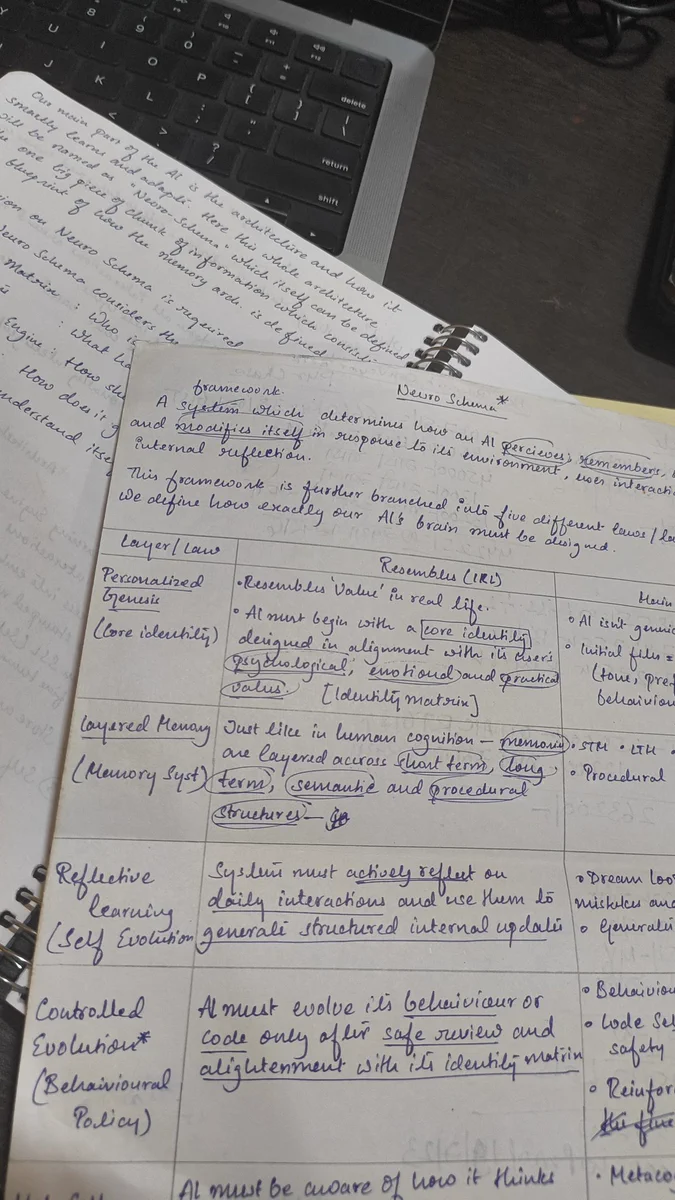 Y
U
I
O
P
J
K
L
M
8
9
0
{
[
}
]
|
\
:
;
"
'
<
,
>
.
?
/
+
=
F11
F12
delete
return
shift
Our main part of the AI is the architecture and how it
smartly learns and adapts. Here this whole architecture
will be named as "Neuro-Schema" which itself can be defined
one big piece of chunk of information which consists
blueprint of how the memory arch. is defined
on Neuro Schema is required
Neuro Schema considers the
Matrix : Who i
: What ha
Engine : How sh
: How does it g
understand itse
Neuro Schema*
framework.
A system which determines how an AI percieves, remembers,
and modifies itself in response to its environment, user interacti
internal reflection.
This framework is further branched into five different laws/la
we define how exactly our AI's brain must be designed.
Layer/Law
Resembles (IRL)
Main
Personalized
Genesis
(Core identity)
• Resembles 'Value' in real life.
• AI must begin with a core identity
designed in alignment with its user's
psychological, emotional and practical
value. [Identity matrix]
• AI isn't generic
• Initial files =
(tone, pref
behaiviou
Layered Memory
(Memory Syst)
Just like in human cognition – memory
are layered across short term, long
term, semantic and procedural
structures –
• STM • LTM •
• Procedural
Reflective
learning
(Self Evolution
System must actively reflect on
daily interactions and use them to
generate structured internal updates
• Dream loo
mistakes and
• Generati
Controlled
Evolution*
(Behaivioural
Policy)
AI must evolve its behaiviour or
code only after safe review and
alightenment with its identity matrix
• Behaiviou
• Code Sel
safety
• Reinfor
AI must be aware of how it thinks
• Metaco